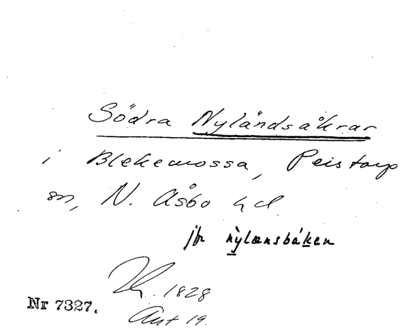 Södra Nyländsåkrar
i Blekemossa, Peistorp
sn, N. Åsbo hd.
jfr nylænsbáken
1828
Nr 7327. Akt 19.